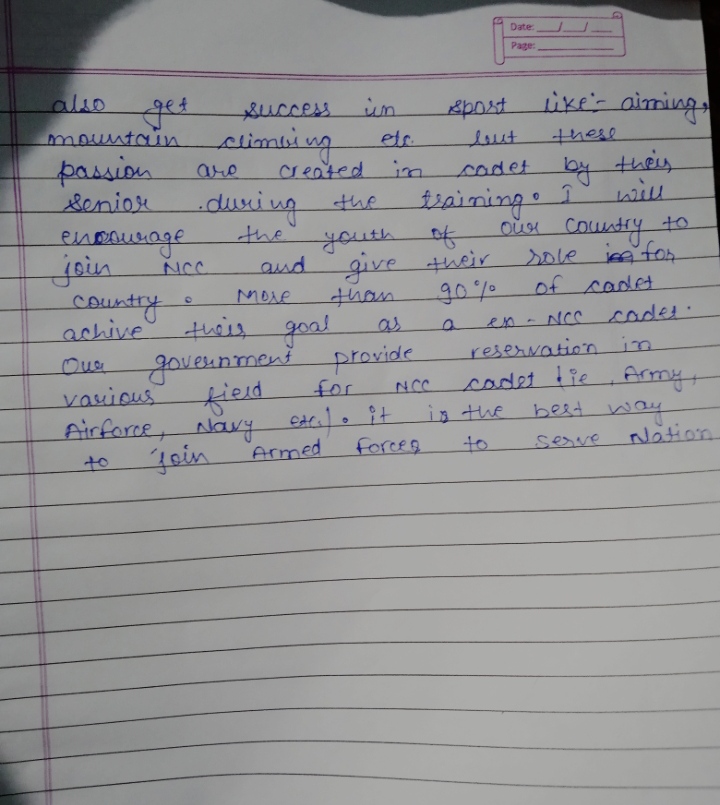 Date: __/__/__
Page: ________
also get success in sport like:- aiming,
mountain climbing etc. but these
passion are created in cadet by their
senior .during the training. I will
encourage the youth of our country to
join NCC and give their role for
country. More than 90% of cadet
achive their goal as a ex-NCC cadet.
Our government provide reservation in
various field for NCC cadet (ie, Army,
Airforce, Navy etc.). it is the best way
to join Armed forces to serve Nation